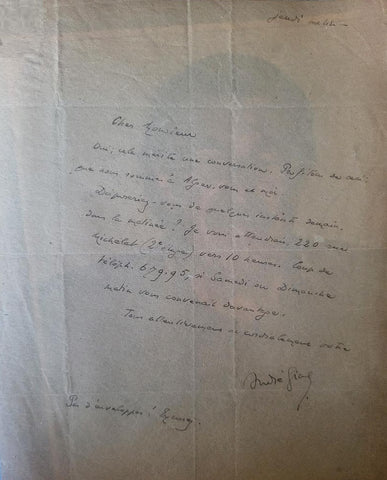 jeudi matin -
Cher Monsieur
Oui, cela mérite une conversation. Profitons de ceci:
que nous sommes à Alger, vous et moi
Disposeriez-vous de quelques instants demain,
dans la matinée? Je vous attendrais, 220 rue
Michelet (2e étage) vers 10 heures. Coup de
téléph. 679.95, si Samedi ou Dimanche
matin vous convenait davantage.
Très attentivement et cordialement votre
André Gide
Pas d'enveloppes! Excusez.